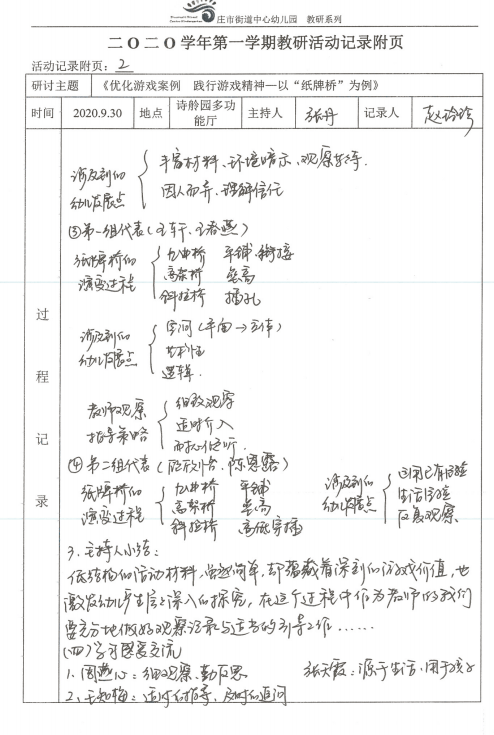 庄市街道中心幼儿园 教研系列
二〇二〇学年第一学期教研活动记录附页
活动记录附页：2
研讨主题 《优化游戏案例 践行游戏精神—以“纸牌桥”为例》
时间 2020.9.30 地点 诗舲园多功能厅 主持人 张丹 记录人 赵玲珍
过程记录
涉及到的幼儿发展点
丰富材料、环境暗示、观察等待.
因人而异、理解信任
③第一组代表（
纸牌桥的演变过程
九曲桥 平铺、衔接
高架桥 垒高
斜拉桥 插孔
涉及到的幼儿发展点
空间（平面→立体）
艺术性
逻辑.
教师观察指导策略
细致观察
适时介入
而耐心倾听.
④第二组代表（
纸牌桥的演变过程
九曲桥 平铺
高架桥 垒高
斜拉桥 高低穿插
涉及到的幼儿发展点
回用已有经验
生活经验
反复观察.
3.主持人小结：
低结构的活动材料，虽然简单，却蕴藏着深刻的游戏价值，也
激发幼儿产生层层深入的探究，在这个过程中作为教师的我们
要充分地做好观察记录与适当的引导工作……
（四）学习感受交流
1.周燕心：细观察、勤反思
张天霞：源于生活、用于孩子
2.王知梅：适时的指导、及时的追问